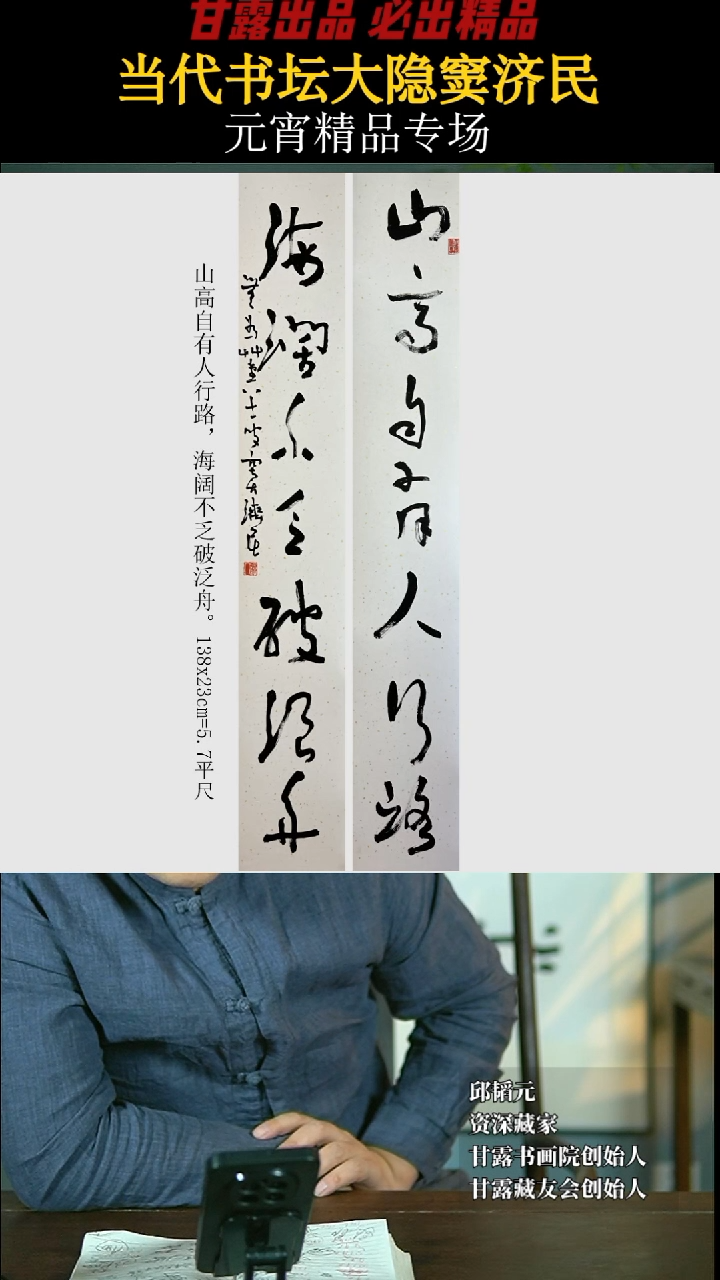 甘露出品 必出精品
当代书坛大隐窦济民
元宵精品专场
山高自有人行路
海阔不乏破泛舟
山高自有人行路，海阔不乏破泛舟。138x23cm=5.7平尺
邱韬元
资深藏家
甘露书画院创始人
甘露藏友会创始人